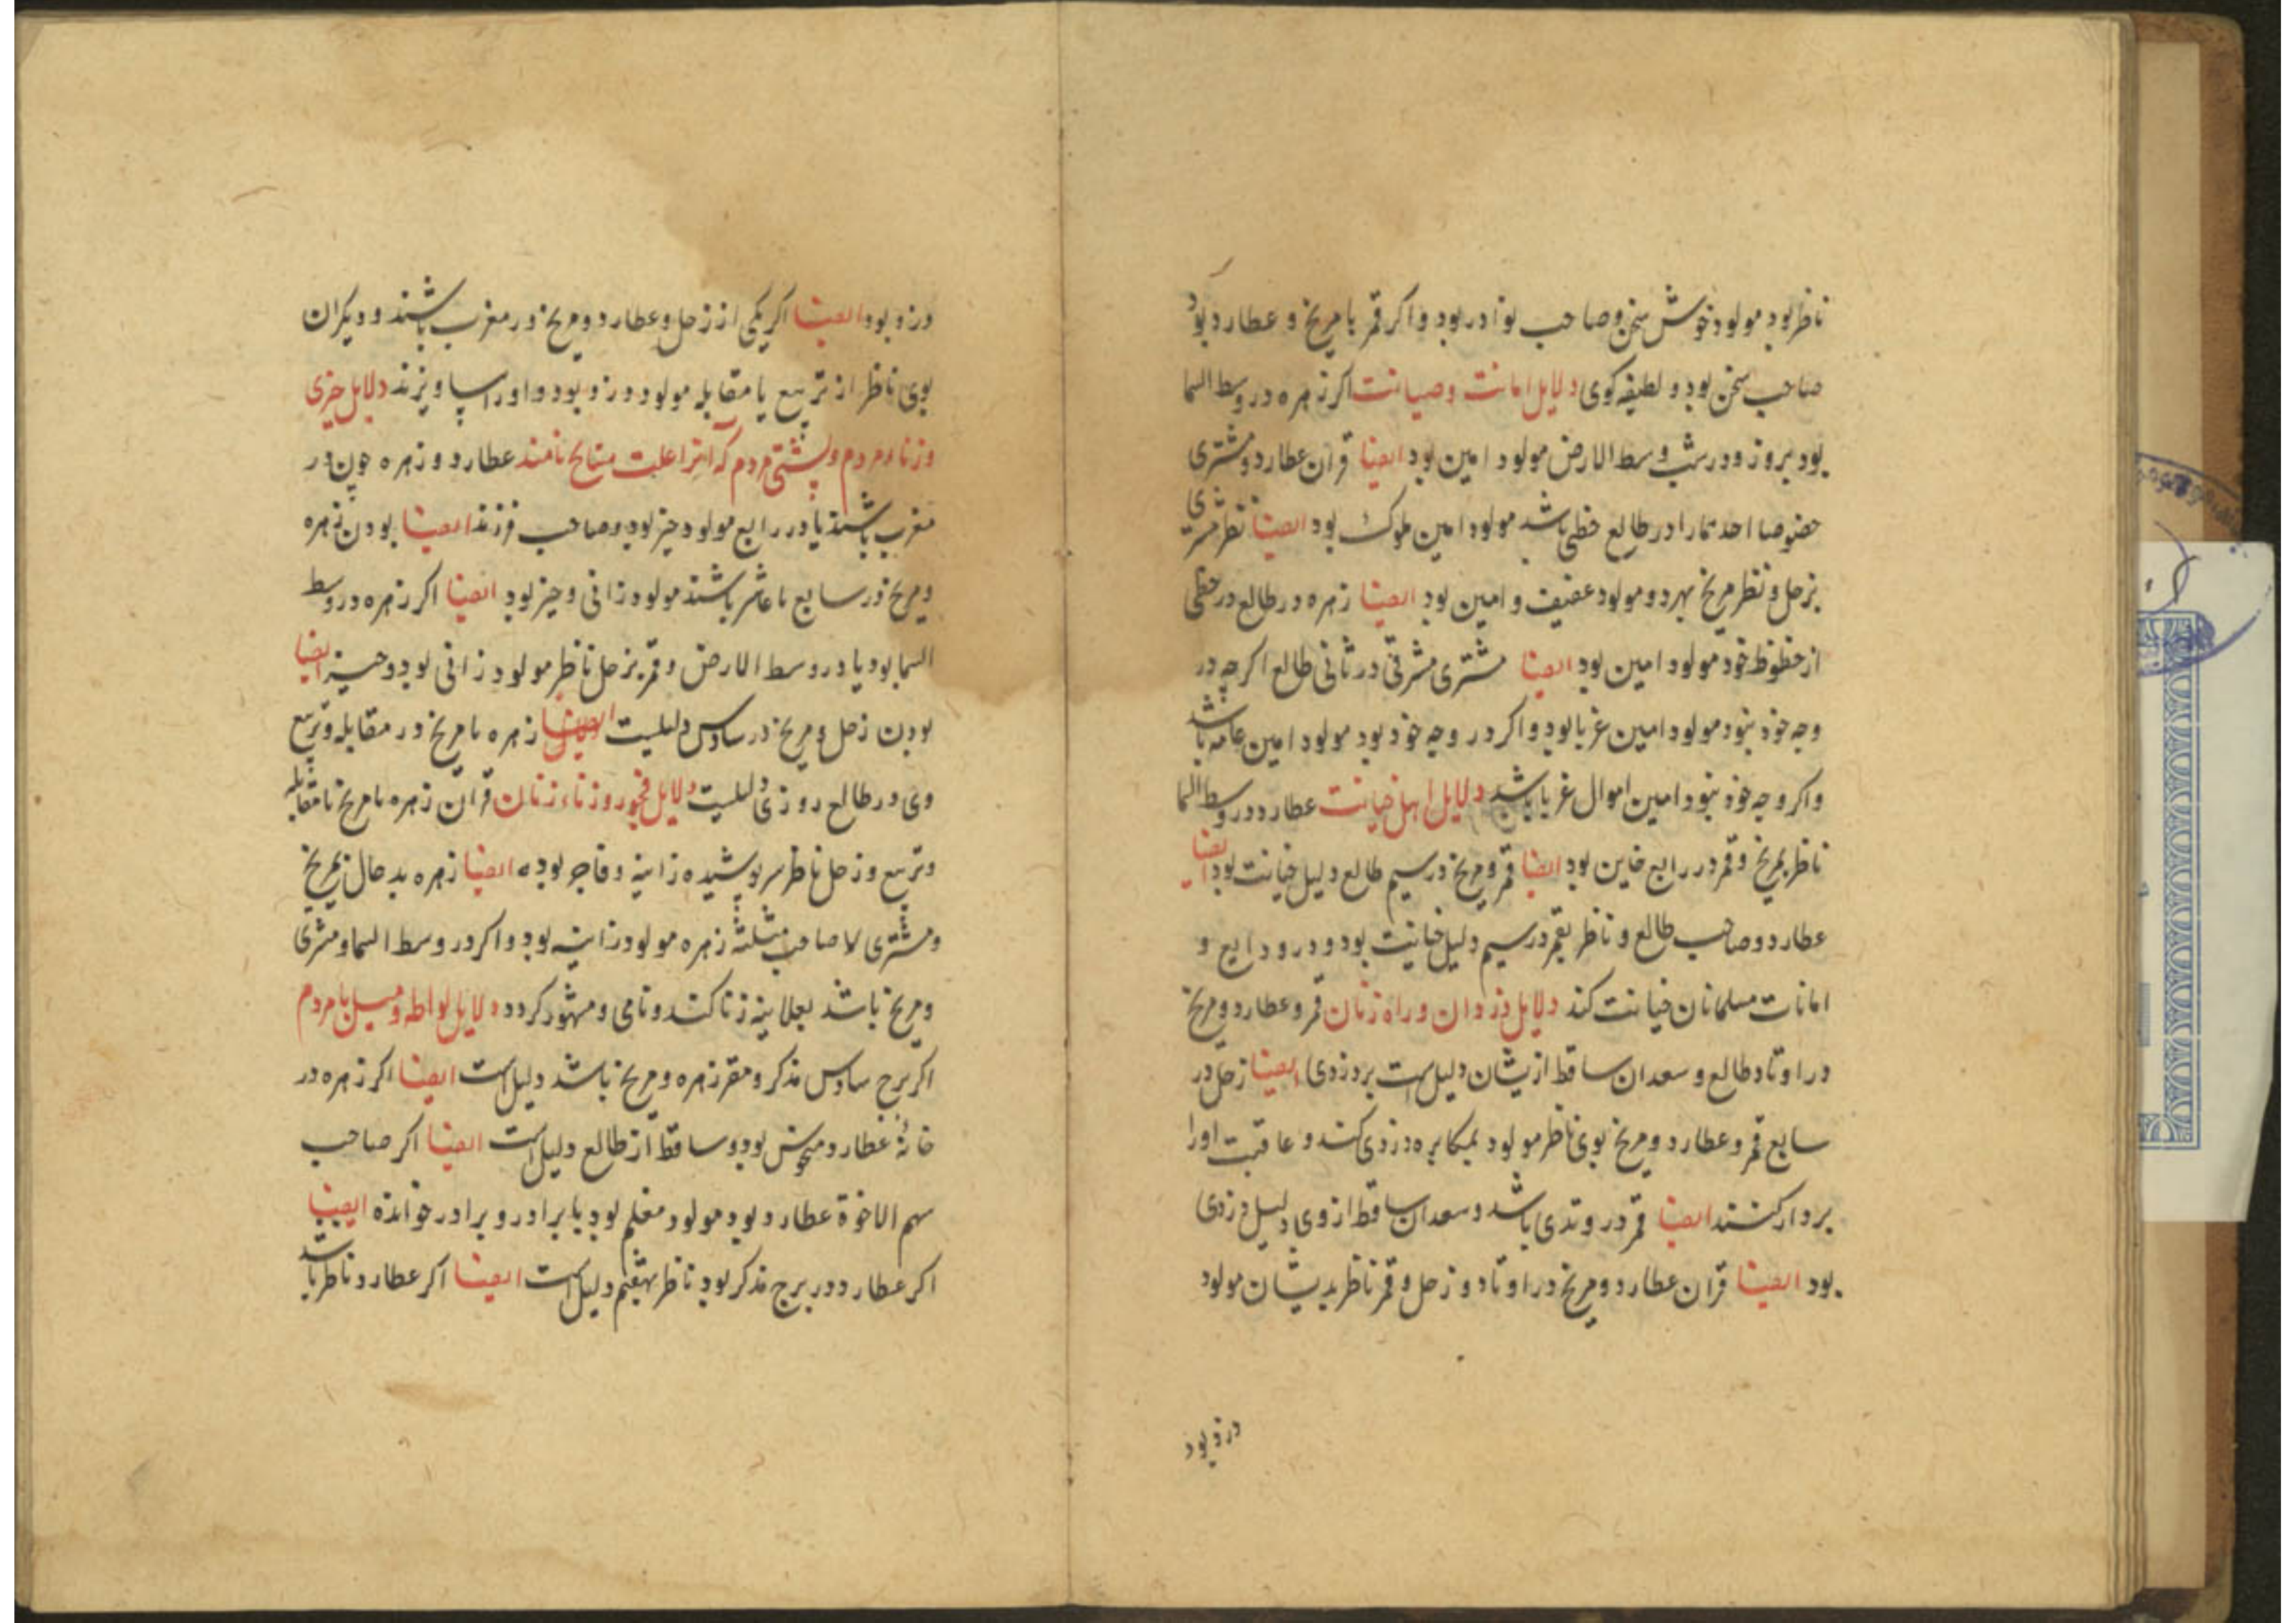 ناظر بود مولود خوش سخن و صاحب نوادر بود و اکر قمر با مریخ و عطارد بود
صاحب سخن بود و لطیفه کوی دلایل امانت و صیانت اکر زهره در وسط السما
بود بروز و در شب وسط الارض مولود امین بود ایضا قران عطارد و مشتری
خصوصا احدهما را در طالع حظی باشد مولود امین ملوک بود ایضا نظر مشتری
بزحل و نظر مریخ بهردو مولود عفیف و امین بود ایضا زهره در طالع در حظی
از حظوظ خود مولود امین بود ایضا مشتری مشرقی در ثانی طالع اکرچه در
وجه خود نبود مولود امین غربا بود و اکر در وجه خود بود مولود امین عامه باشد
و اکر وجه خود نبود امین اموال غربا باشد دلایل اهل خیانت عطارد در وسط السما
ناظر بمریخ و قمر در رابع خاین بود ایضا قمر و مریخ در سیم طالع دلیل خیانت بود ایضا
عطارد و صاحب طالع و ناظر بقمر در سیم دلیل خیانت بود و در ودایع و
امانات مسلمانان خیانت کند دلایل دزدان و راه زنان قمر و عطارد و مریخ
در اوتاد طالع و سعدان ساقط ازیشان دلیل است بر دزدی ایضا زحل در
سابع قمر و عطارد و مریخ بوی ناظر مولود بمکابره دزدی کند و عاقبت او را
بردار کنند ایضا قمر در وتدی باشد و سعدان ساقط از وی دلیل دزدی
بود ایضا قران عطارد و مریخ در اوتاد و زحل و قمر ناظر بدیشان مولود
دزد بود
دزد بود ایضا اکر یکی از زحل و عطارد و مریخ در مغرب باشند و دیکران
بوی ناظر از تربیع یا مقابله مولود دزد بود و او را بیاویزند دلایل حیزی
و زناء مردم و پشتی مردم که انرا علت مشایخ نامند عطارد و زهره چون در
مغرب باشند یا در رابع مولود حیز بود و صاحب فرزند ایضا بودن زهره
و مریخ در سابع یا عاشر باشند مولود زانی و حیز بود ایضا اکر زهره در وسط
السما بود یا در وسط الارض و قمر بزحل ناظر مولود زانی بود و حیز ایضا
بودن زحل و مریخ در سادس دلیلیت ایضا زهره با مریخ در مقابله و تربیع
وی در طالع روزی دلیلیت دلایل فجور و زناء زنان قران زهره با مریخ یا مقابله
و تربیع و زحل ناظر سرپوشیده زانیه و فاجره بوده ایضا زهره بد حال بمریخ
و مشتری لا صاحب مثلثه زهره مولود زانیه بود و اکر در وسط السما و مشتری
و مریخ باشد بعلانیه زنا کند و نامی و مشهور کردد دلایل لواطه و میل با مردم
اکر برج سادس مذکر و مقر زهره و مریخ باشد دلیل است ایضا اکر زهره در
خانهٔ عطارد منحوس بود و ساقط از طالع دلیل است ایضا اکر صاحب
سهم الاخوة عطارد بود مولود مغلم بود با برادر و برادر خوانده ایضا
اکر عطارد در برج مذکر بود ناظر بهفتم دلیل است ایضا اکر عطارد ناظر باشد